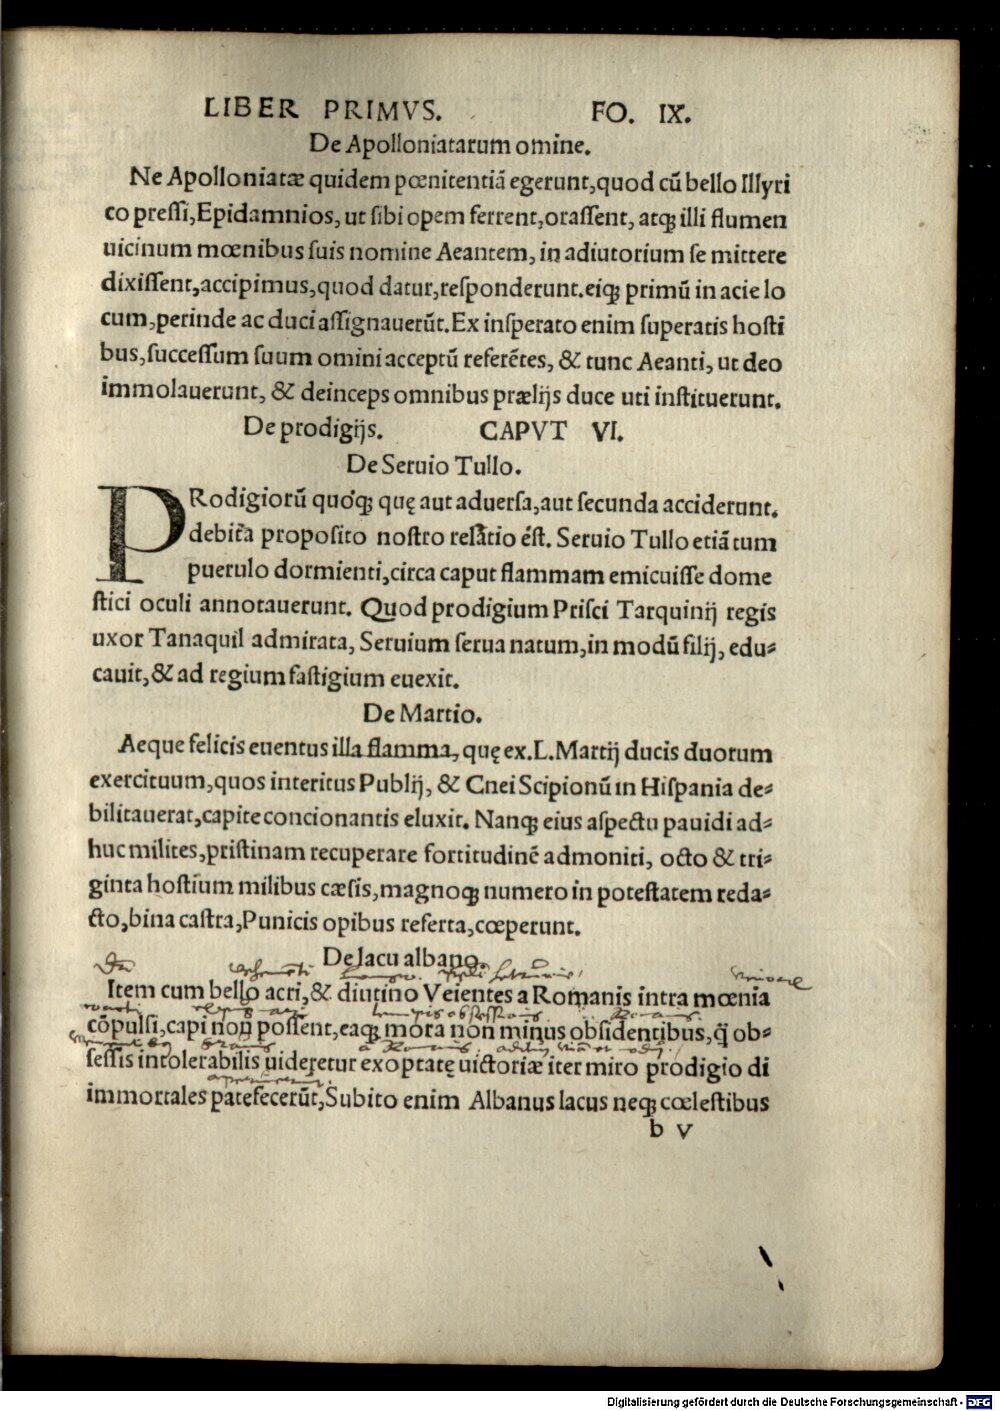 LIBER PRIMVS. FO. IX.
De Apolloniatarum omine.
Ne Apolloniatæ quidem pœnitentiā egerunt, quod cū bello Illyri
co pressi, Epidamnios, ut sibi opem ferrent, orassent, atqꝫ illi flumen
uicinum mœnibus suis nomine Aeantem, in adiutorium se mittere
dixissent, accipimus, quod datur, responderunt. eiqꝫ primū in acie lo
cum, perinde ac duci assignauerūt. Ex insperato enim superatis hosti
bus, successum suum omini acceptū referētes, & tunc Aeanti, ut deo
immolauerunt, & deinceps omnibus prælijs duce uti instituerunt.
De prodigijs. CAPVT VI.
De Seruio Tullo.
PRodigiorū quoqꝫ quę aut aduersa, aut secunda acciderunt.
debita proposito nostro relatio est. Seruio Tullo etiā tum
puerulo dormienti, circa caput flammam emicuisse dome
stici oculi annotauerunt. Quod prodigium Prisci Tarquinij regis
uxor Tanaquil admirata, Seruium serua natum, in modū filij, edu-
cauit, & ad regium fastigium euexit.
De Martio.
Aeque felicis euentus illa flamma, quę ex. L. Martij ducis duorum
exercituum, quos interitus Publij, & Cnei Scipionū in Hispania de-
bilitauerat, capite concionantis eluxit. Nanqꝫ eius aspectu pauidi ad-
huc milites, pristinam recuperare fortitudinē admoniti, octo & tri-
ginta hostium milibus cæsis, magnoqꝫ numero in potestatem reda-
cto, bina castra, Punicis opibus referta, cœperunt.
De lacu albano.
Item cum bello acri, & diutino Veientes a Romanis intra mœnia
cōpulsi, capi non possent, eaqꝫ mora non minus obsidentibus, q̄ ob-
a Romanis
sessis intolerabilis uideretur exoptatę uictoriæ iter miro prodigio di
immortales patefecerūt, Subito enim Albanus lacus neqꝫ cœlestibus
b v
Digitalisierung gefördert durch die Deutsche Forschungsgemeinschaft - DFG